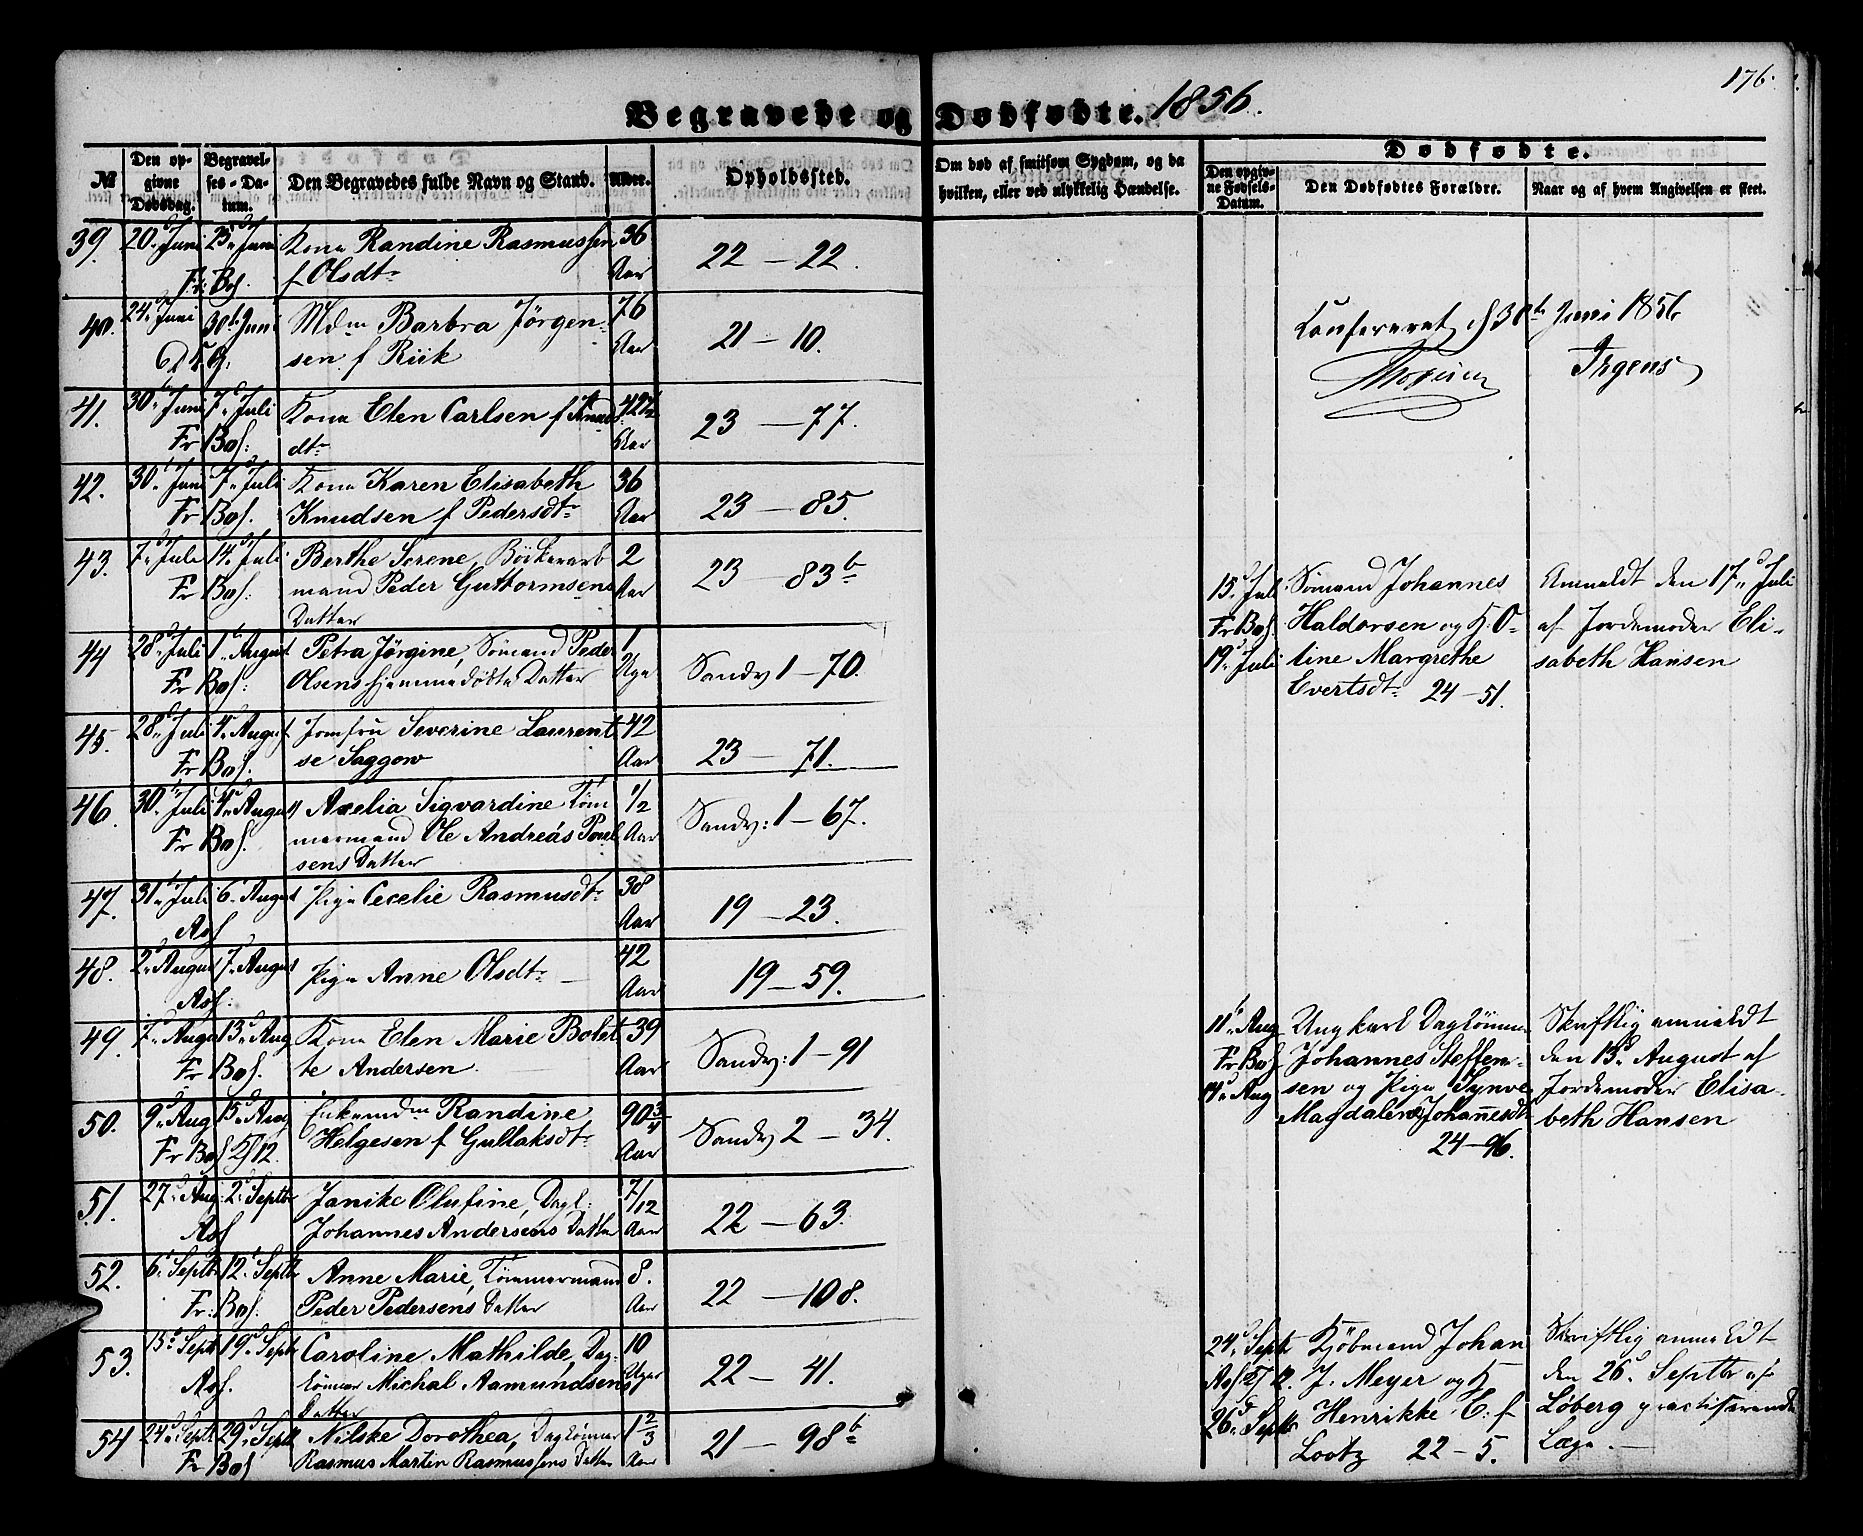 176.
Begravede og Dødfødte. 1856.
№
Den opgivne Dødsdag.
Begravelses-Datum.
Den Begravedes fulde Navn og Stand.
Alder.
Opholdssted.
Om død af smitsom Sygdom, og da hvilken, eller ved ulykkelig Hændelse.
Dødfødte.
Den opgivne Fødsels-Datum.
Den Dødfødtes Forældre.
Naar og af hvem Angivelsen er skeet.
39. 20. Juni 25. Juni Kona Randine Rasmussen 36
Fr: Bos. f Olsdtr Aar 22 – 22.
40. 24. Juni 30te Juni Mdm Barbra Jörgen- 76
sen f Riik Aar 21 – 10.
Confereret d 30te Juni 1856
Irgens
41. 30. Juni 7. Juli Kona Elen Carlsen f Knuds 42
Fr Bos: dtr Aar 23 – 77.
42. 30. Juni 7. Juli Kona Karen Elisabeth 36
Fr Bos. Knudsen f Pedersdtr Aar 23 – 85.
43. 7. Juli 14. Juli Berthe Serene, Bödkerarb 2
Fr Bos. mand Peder Guttormsens Aar 23 – 83b
Datter
15. Juli Sömand Johannes Anmeldt den 17. Juli
Fr Bos. Haldorsen og K. O- af Jordemoder Eli-
19. Juli line Margrethe sabeth Hansen
Evertsdtr 24 – 51.
44 28. Juli 1. August Petra Jörgine, Sömand Peder 1
Fr Bos: Olsens hjemmedöbte Datter Uge Sandv 1 – 70.
45. 28. Juli 4. August Jomfru Severine Laurent- 42
Fr Bos. se Saggow Aar 23 – 71.
46. 30. Juli 4. August Axelia Sigvardine Töm 1/2
Fr Bos. mermand Ole Andreas Poul Aar Sandv: 1 – 67.
sens Datter
47. 31. Juli 6. August Pige Cecelie Rasmusdtr 38
Asf Aar 19 – 23.
48. 2. August 7. August Pige Anne Olsdtr 42
Asf. Aar 19 – 59.
49. 7. Aug 13. Aug Kona Elen Marie Bolet- 39
Fr Bos. te Andersen Aar Sandv: 1 – 91
11. Aug Ungkarl Daglönner Skriftlig anmeldt
Fr Bos. Johannes Steffen- den 13. August af
14. Aug sen og Pige Synve Jordemoder Elisa-
Magdalene Johannesdtr beth Hansen
24 – 96.
50. 9. Aug 15. Aug Enkemdm Randine 90 3/4
Fr Bos Helgesen f Gullaksdtr Aar Sandv 2 – 34.
51. 27. Aug. 2. Septbr Janike Olufine, Dagl: 7/12
Asf Johannes Andersens Datter Aar 22 – 63.
52. 6. Septbr 12. Septbr Anne Marie, Tömmermand 8.
Fr: Bos. Peder Pedersens Datter Aar 22 – 108.
53. 15. Septb 19. Septbr Caroline Mathilde, Dag- 10
Asf. lönner Michal Aamundsens Uger 22 – 41.
Datter
24. Septb Kjöbmand Johan Skriftlig anmeldt
J. Meyer og K den 26. Septbr af
26. Septbr Henrikke E. f Löberg practiserende
Lootz 22 – 5. Læge. –
54 24. Septbr 29. Septb Nilske Dorothea, Daglönner 1 2/3
Fr Bos Rasmus Martin Rasmussens Datter Aar 21 – 98b